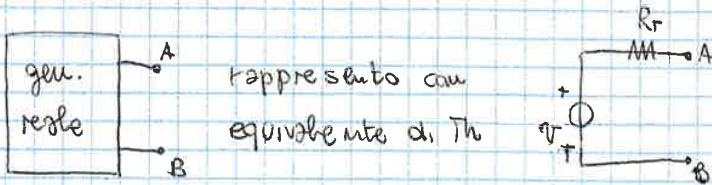 gen.
reale
A
B
rappresento con
equivalente di Th
Rr
A
+
v
B